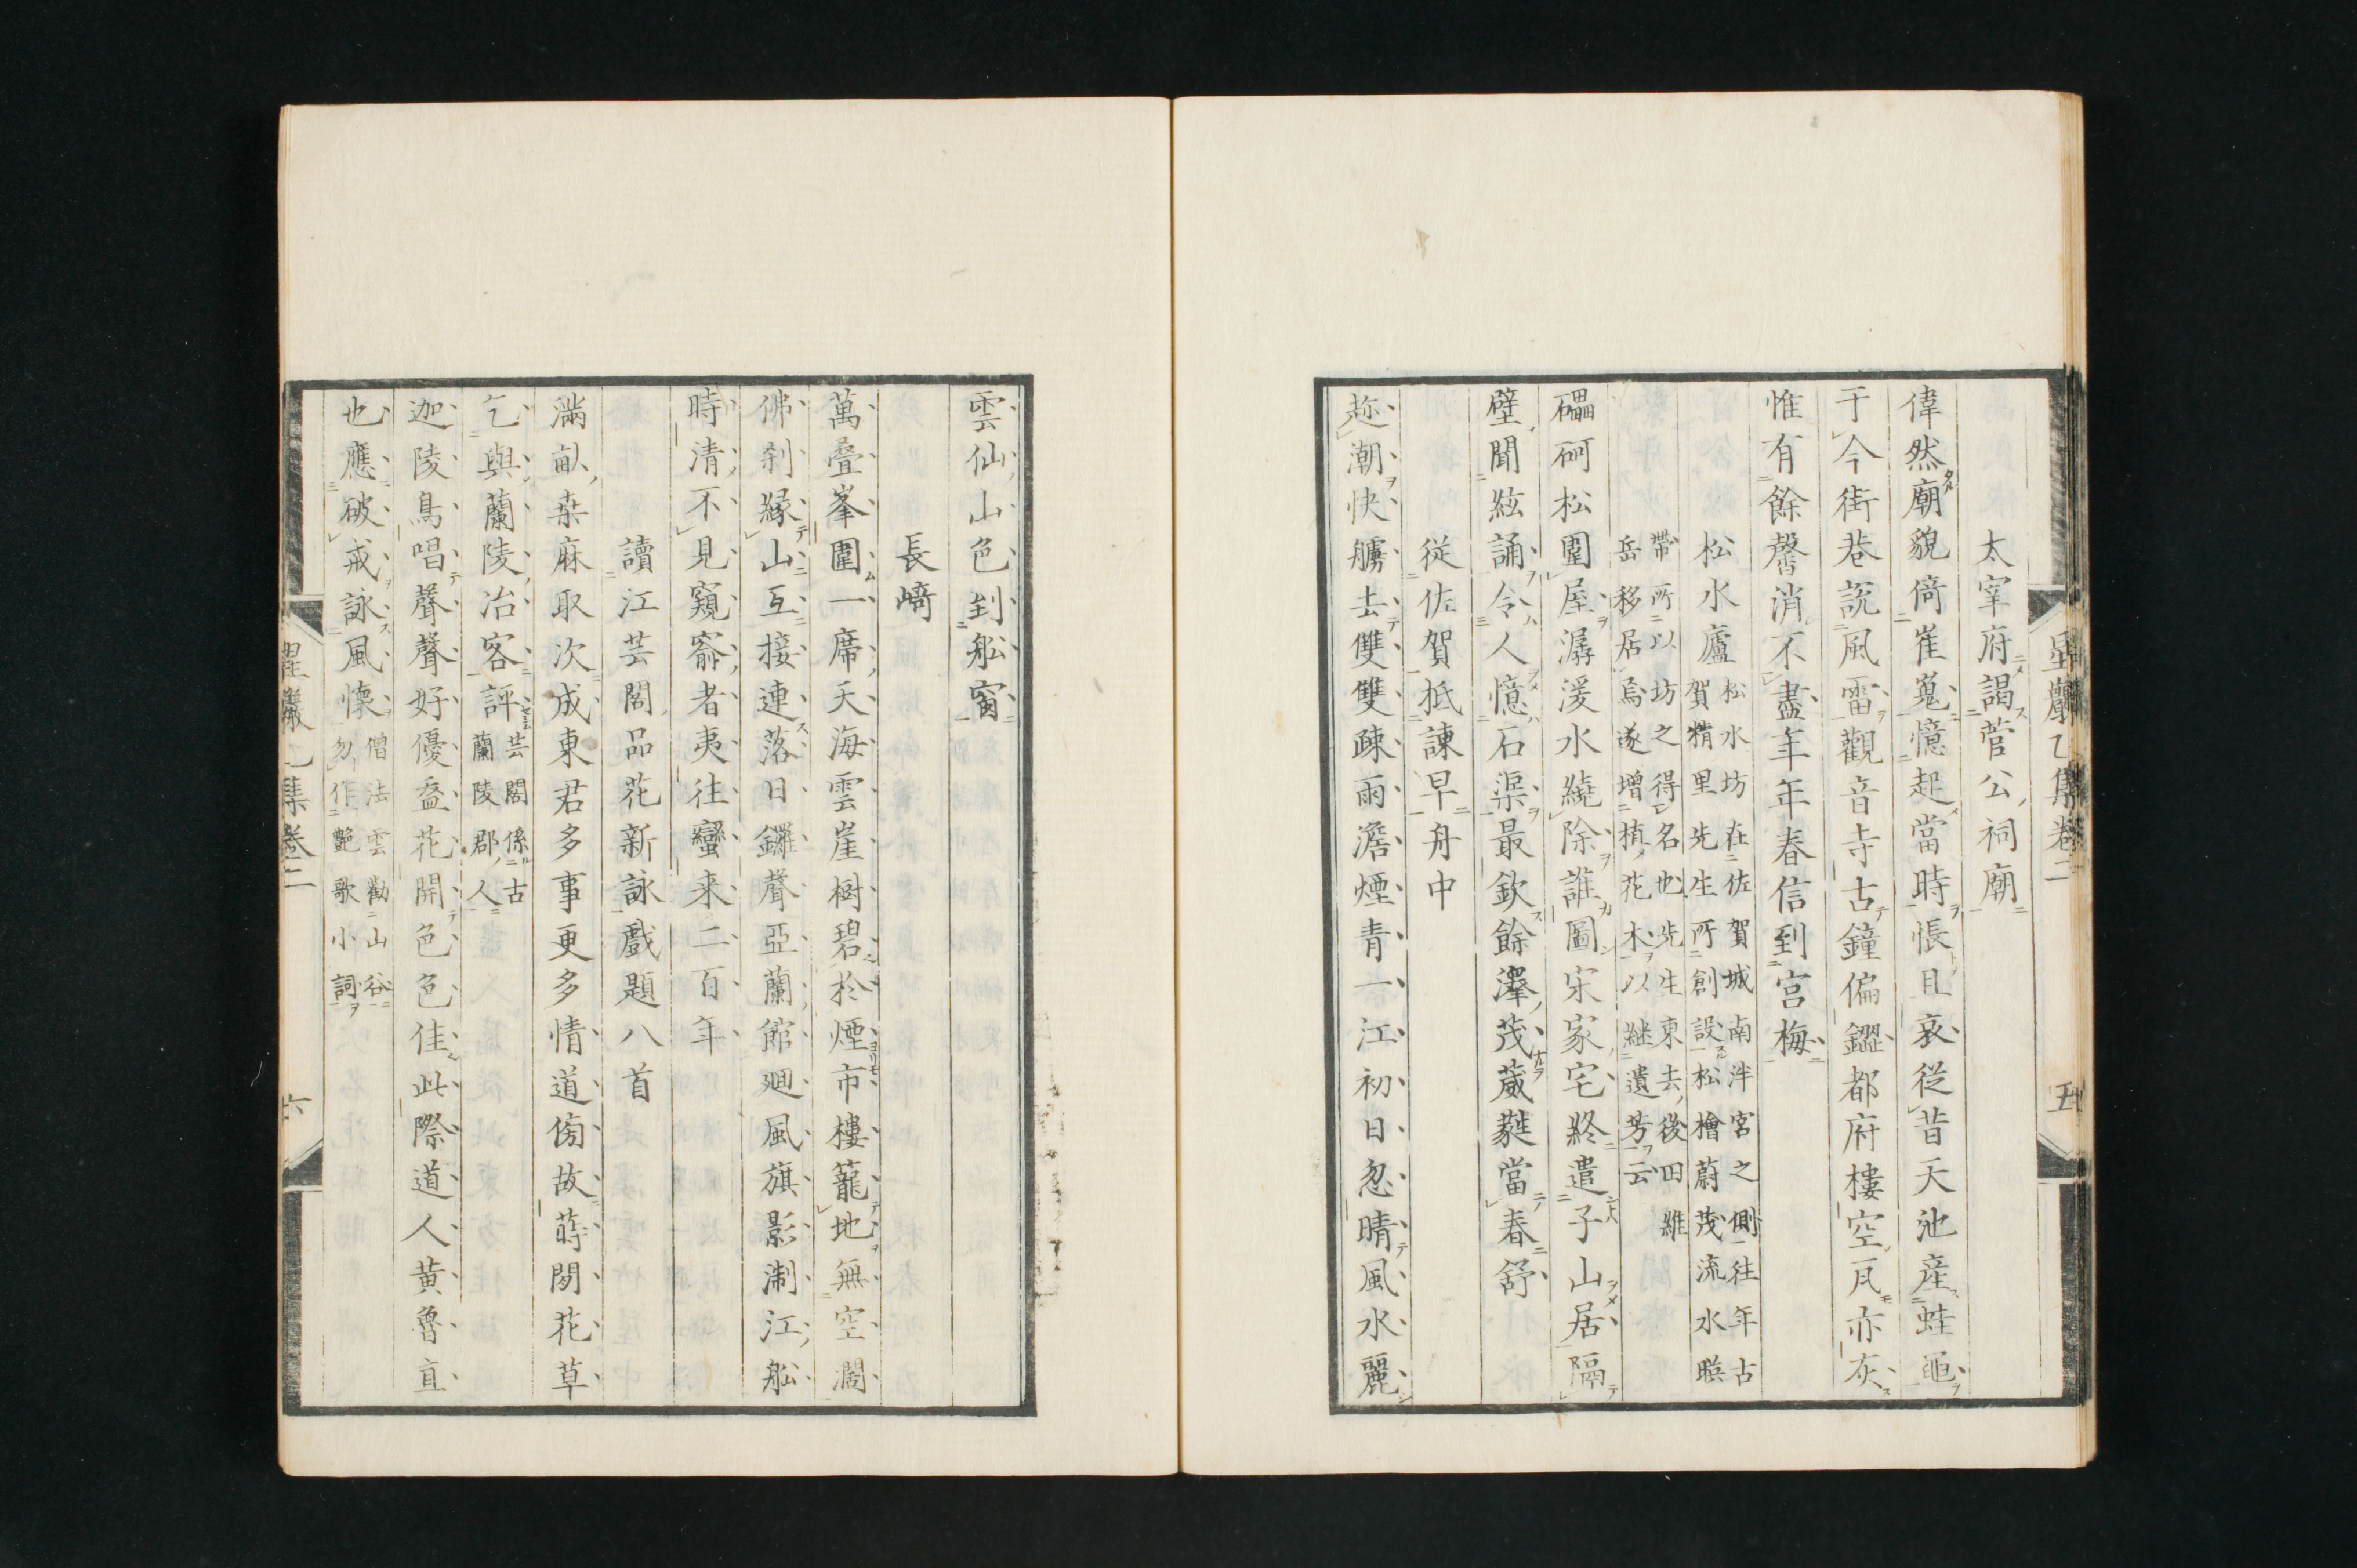 星巖乙集卷二
五
太宰府謁菅公祠廟
偉然廟貌倚崔嵬憶起當時悵且哀從昔天池産蛙黽
于今街巷說風雷觀音寺古鐘偏鏗都府樓空瓦亦灰
惟有餘馨消不盡年年春信到宮梅
松水廬
松水坊在佐賀城南泮宮之側往年古
賀精里先生所創設松檜蔚茂流水暎
帶所以坊之得名也先生東去後田雒
岳移居焉遂增植花木以継遺芳云
礧砢松圍屋潺湲水繞除誰圖宋家宅終遣子山居隔
壁聞絃誦令人憶石渠最欽餘澤茂葳蕤當春舒
従佐賀抵諌早舟中
趂潮快艣去雙雙疎雨澹煙青一江初日忽晴風水麗
雲仙山色到舩窗
長﨑
萬疊峯圍一席天海雲崖樹碧於煙市樓蘢地無空濶
佛刹縁山互接連落日鑼聲亞蘭館廻風旗影淛江舩
時清不見窺窬者夷往蠻来二百年
讀江芸閣品花新詠戲題八首
滿畝桒麻取次成東君多事更多情道傍故蒔閒花草
乞與蘭陵冶客評
芸閣係古
蘭陵郡人
迦陵鳥唱聲聲好優盋花開色色佳此際道人黄魯直
也應破戒詠風懐
僧法雲勸山谷
勿作艶歌小詞
星巖乙集卷二
六